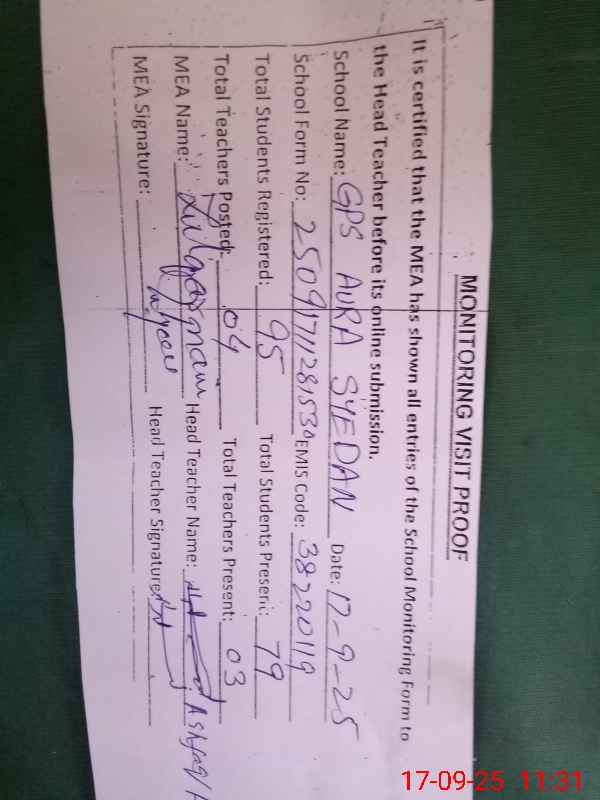 MONITORING VISIT PROOF
It is certified that the MEA has shown all entries of the School Monitoring Form to
the Head Teacher before its online submission.
School Name: GPS AURA SYEDAN Date: 17-9-25
School Form No: EMIS Code: 38220119
Total Students Registered: 95 Total Students Present: 79
Total Teachers Posted: 04 Total Teachers Present: 03
MEA Name: Head Teacher Name:
MEA Signature: Head Teacher Signature:
17-09-25 11:31